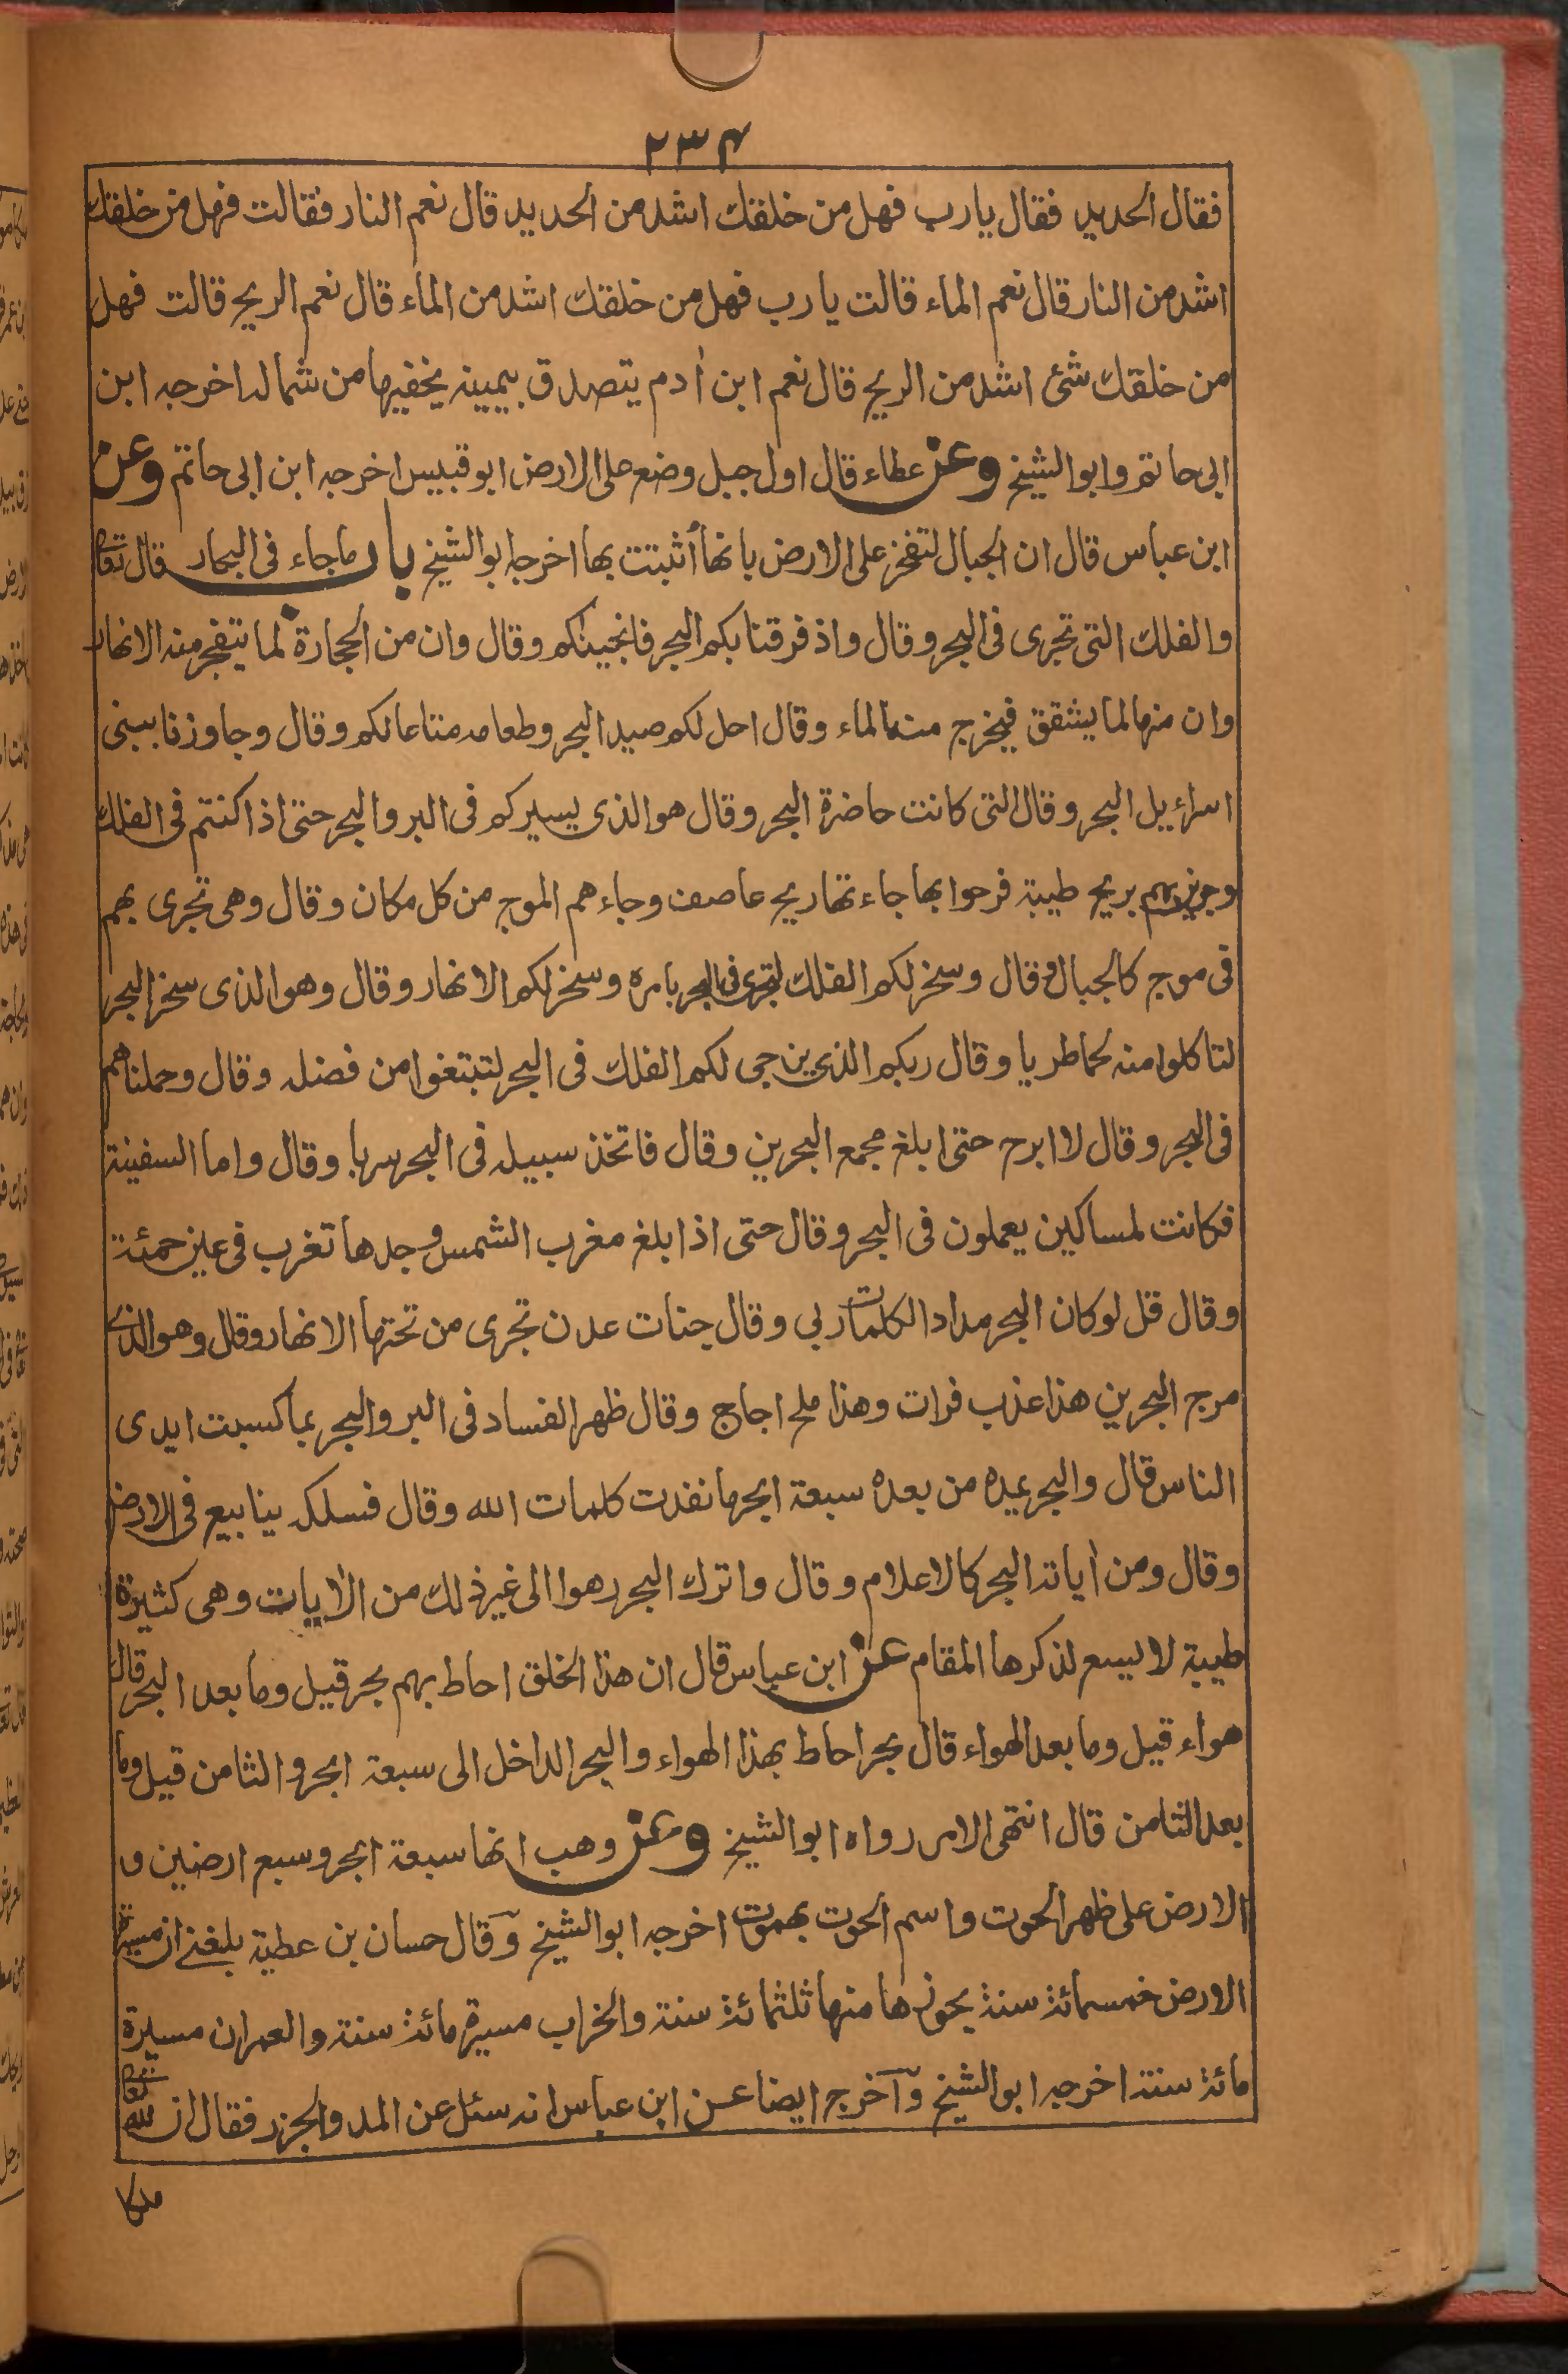 ٢٣٤
فقال الحديد فقال يارب فهل من خلقك اشد من الحديد قال نعم النار فقالت فهل من خلقك
اشد من النار قال نعم الماء قالت يا رب فهل من خلقك اشد من الماء قال نعم الريح قالت فهل
من خلقك شئ اشد من الريح قال نعم ابن أدم يتصدق بيمينه يخفيها من شماله اخرجه ابن
ابى حاتم وابو الشيخ وعن عطاء قال اول جبل وضع على الارض ابو قبيس اخرجه ابن ابى حاتم وعن
ابن عباس قال ان الجبال لتفخر على الارض بانها أثبتت بها اخرجه ابو الشيخ باب ماجاء فى البحار قال تعالى
والفلك التى تجرى فى البحر وقال واذ فرقنا بكم البحر فانجينكم وقال وان من الحجارة لما يتفجر منه الانهار
وان منها لما يشقق فيخرج منه الماء وقال احل لكم صيد البحر وطعامه متاعا لكم وقال وجاوزنا ببنى
اسرائيل البحر وقال التى كانت حاضرة البحر وقال هو الذى يسيركم فى البر والبحر حتى اذا كنتم فى الفلك
وجرين بهم بريح طيبة فرحوا بها جاءتها ريح عاصف وجاءهم الموج من كل مكان وقال وهى تجرى بهم
فى موج كالجبال وقال وسخر لكم الفلك لتجرى فى البحر بامره وسخر لكم الانهار وقال وهو الذى سخر البحر
لتاكلوا منه لحما طريا وقال ربكم الذى يزجى لكم الفلك فى البحر لتبتغوا من فضله وقال وحملناهم
فى البحر وقال لا ابرح حتى ابلغ مجمع البحرين وقال فاتخذ سبيله فى البحر سربا وقال واما السفينة
فكانت لمساكين يعملون فى البحر وقال حتى اذا بلغ مغرب الشمس وجدها تغرب فى عين حمئة
وقال قل لو كان البحر مدادا لكلمات ربى وقال جنات عدن تجرى من تحتها الانهار وقال وهو الذى
مرج البحرين هذا عذب فرات وهذا ملح اجاج وقال ظهر الفساد فى البر والبحر بما كسبت ايدى
الناس قال والبحر يمده من بعده سبعة ابحر ما نفدت كلمات الله وقال فسلكه ينابيع فى الارض
وقال ومن أياته البحر كالاعلام وقال واترك البحر رهوا الى غير ذلك من الأيات وهى كثيرة
طيبة لا يسع لذكرها المقام عن ابن عباس قال ان هذا الخلق احاط بهم بحر قيل وما بعد البحر قال
هواء قيل وما بعد الهواء قال بحر احاط بهذا الهواء والبحر الداخل الى سبعة ابحر والثامن قيل وما
بعد الثامن قال انتهى الامر رواه ابو الشيخ وعن وهب انها سبعة ابحر وسبع ارضين و
الارض على ظهر الحوت واسم الحوت بهموت اخرجه ابو الشيخ وقال حسان بن عطية بلغنى ان مسيرة
الارض خمسمائة سنة بحورها منها ثلثمائة سنة والخراب مسيرة مائة سنة والعمران مسيرة
مائة سنة اخرجه ابو الشيخ وآخرج ايضا عن ابن عباس انه سئل عن المد والجزر فقال ان لله تعالى
ملكا